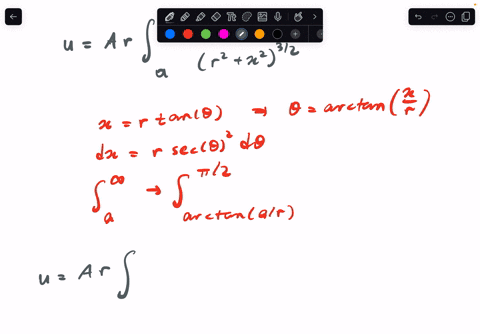 u = A r ∫ₐ (r² + x²)^{3/2}
x = r tan(θ) → θ = arctan(x/r)
dx = r sec(θ)² dθ
∫ₐ^∞ → ∫_{arctan(a/r)}^{π/2}
u = A r ∫